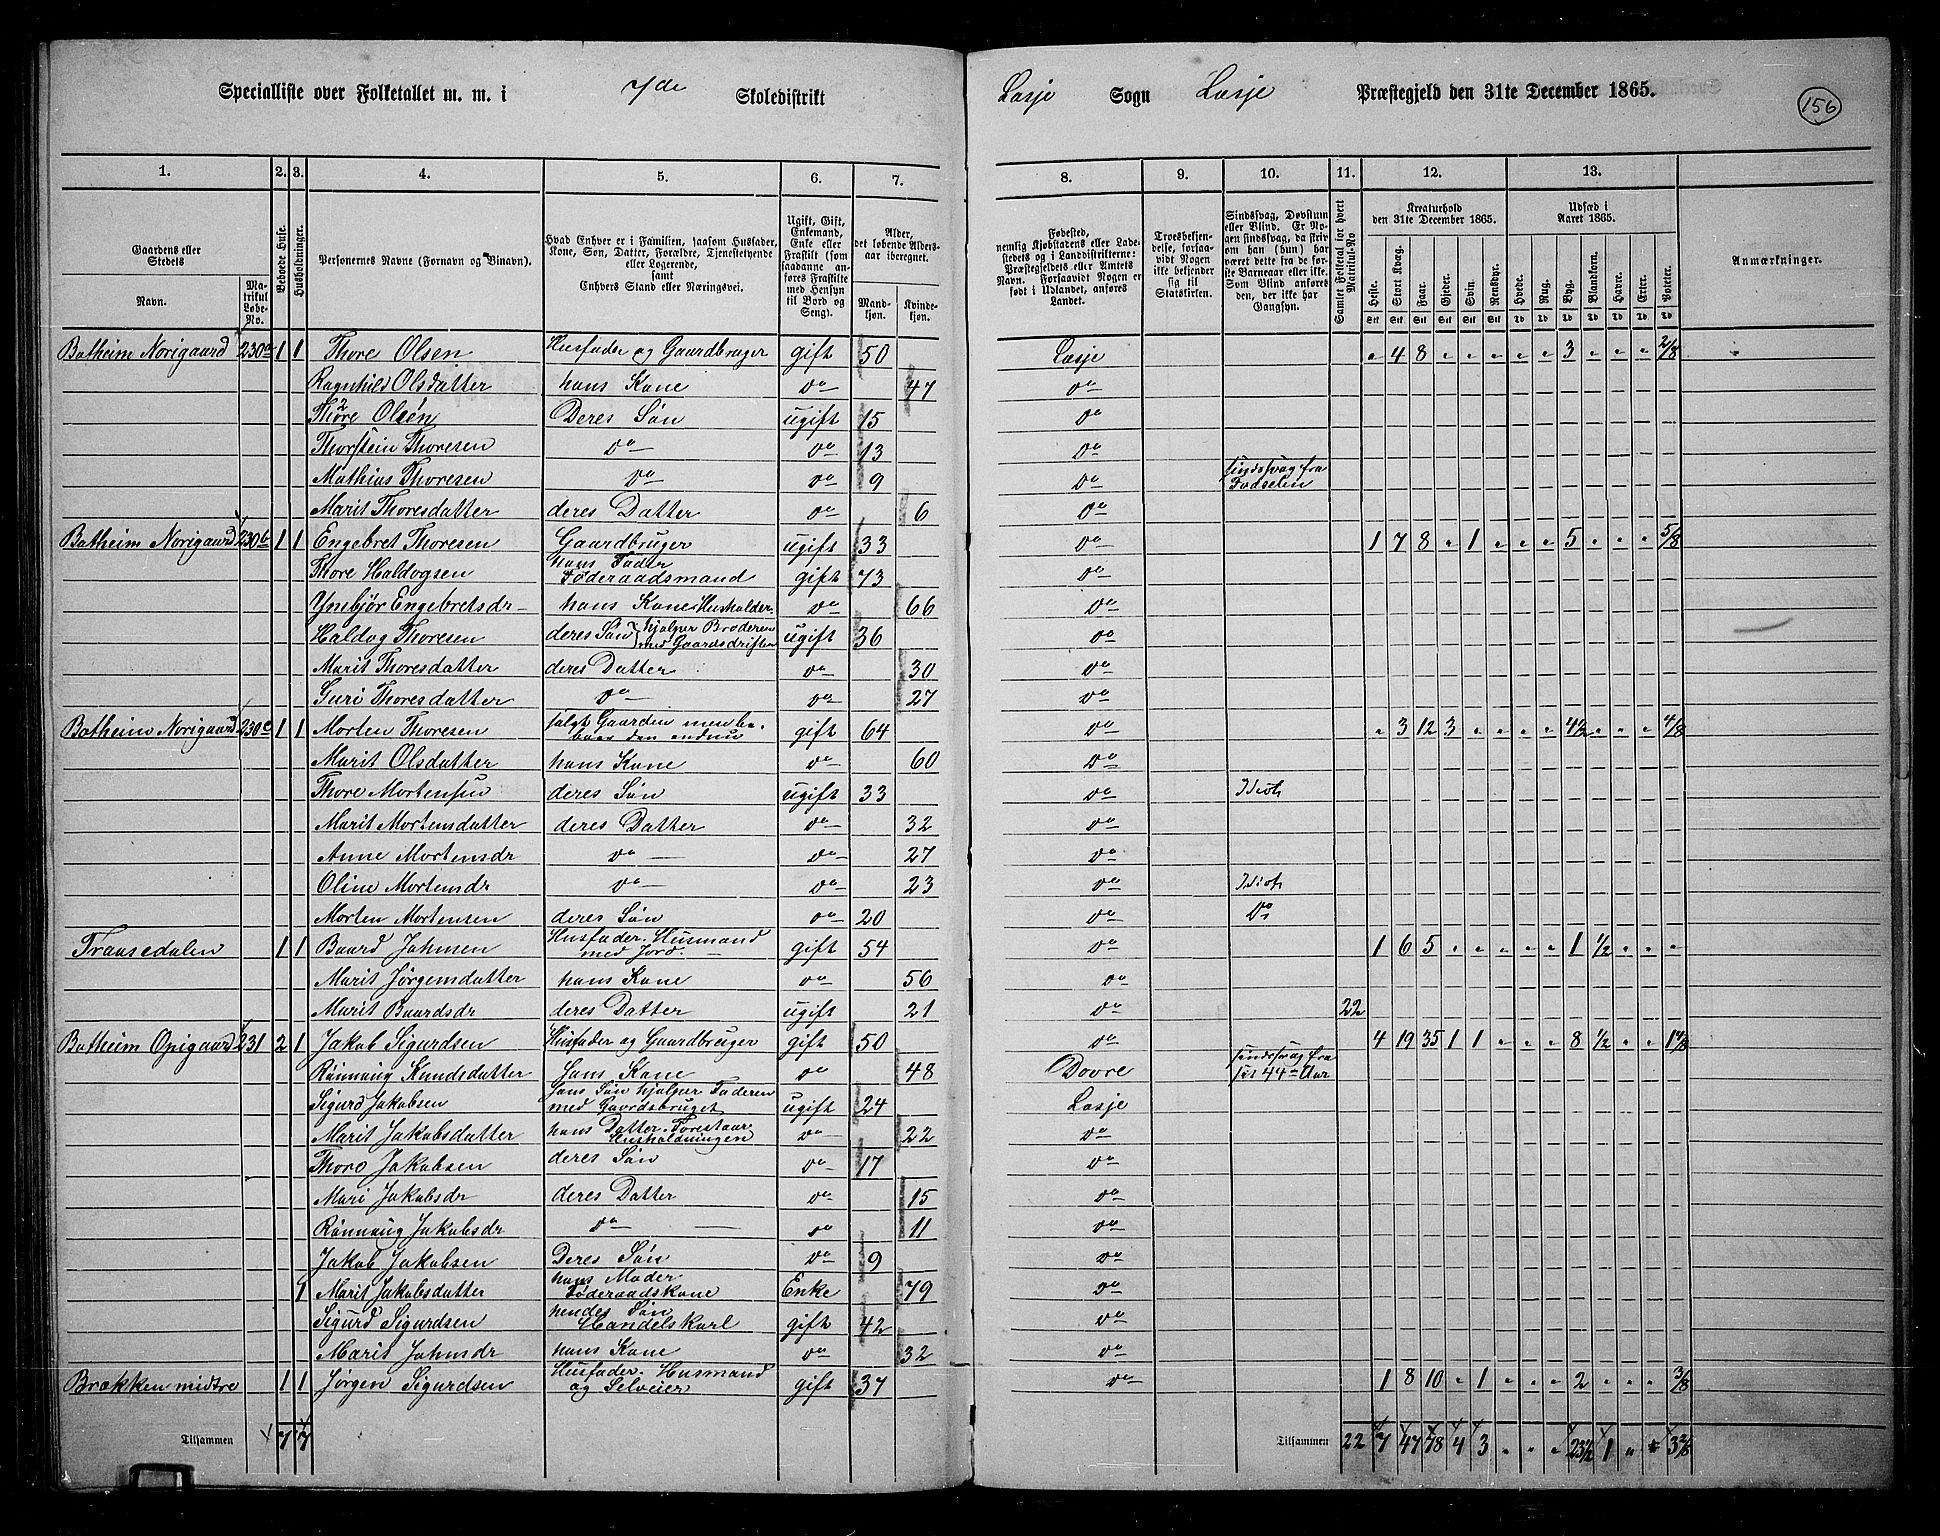 Specialliste over Folketallet m. m. i 7de Skoledistrikt Lesje Sogn Lesje Præstegjeld den 31te December 1865. 156
1. 2. 3. 4. 5. 6. 7. 8. 9. 10. 11. 12. 13.
Gaardens eller Stedets
Navn.
Matrikul Løbe-No.
Beboede Huse.
Husholdninger.
Personernes Navne (Fornavn og Binavn).
Hvad Enhver er i Familien, saasom Husfader, Kone, Søn, Datter, Forældre, Tjenestetyende eller Logerende, samt Enhvers Stand eller Næringsvei.
Ugift, Gift, Enkemand, Enke eller Fraskilt (som saadanne anføres Fraskilte med Hensyn til Bord og Seng).
Alder, det løbende Alders-aar iberegnet.
Mandkjøn.
Kvindekjøn.
Fødested, nemlig Kjøbstadens eller Ladestedets og i Landdistrikterne: Præstegjeldets eller Amtets Navn. Forsaavidt Nogen er født i Udlandet, anføres Landet.
Troesbekjendelse, forsaavidt Nogen ikke bekjender sig til Statskirken.
Sindssvag, Døvstum eller Blind. Er Nogen sindssvag, da skrives om han (hun) har været dette fra de første Barneaar eller ikke. Som Blind anføres den, der ikke har Gangsyn.
Samlet Folketal for hvert Matrikul-No
Kreaturhold den 31te December 1865.
Heste. Stort Kvæg. Faar. Gjeder. Svin. Rensdyr.
Udsæd i Aaret 1865.
Hvede. Rug. Byg. Blandkorn. Havre. Erter. Poteter.
Anmærkninger.
Botheim Norigaard 230a 1 1 Thore Olsen Husfader og Gaardbruger gift 50 Lesje " 4 8 " " " " " 3 " " " 2/8
Ragnhild Olsdatter hans Kone do 47 do
Thore Olsen Deres Søn ugift 15 do
Thorstein Thoresen do do 13 do
Mathias Thoresen do do 9 do sindssvag fra Fødselen
Marit Thoresdatter deres Datter do 6 do
Botheim Norigaard 230b 1 1 Engebret Thoresen Gaardbruger ugift 33 do 1 7 8 " 1 " " " 5 " " " 5/8
Thore Haldogsen hans Fader Føderaadsmand gift 73 do
Ynebjør Engebretsdr hans Kone Husholder. do 66 do
Haldog Thoresen deres Søn hjelper Broderen med Gaardsdriften ugift 36 do
Marit Thoresdatter deres Datter do 30 do
Guri Thoresdatter do do 27 do
Botheim Norigaard 230c 1 1 Morten Thoresen solgt Gaarden men beboer den endnu gift 64 do " 3 12 3 " " " " 4½ " " " 4/8
Marit Olsdatter hans Kone do 60 do
Thore Mortensen deres Søn ugift 33 do Idiot
Marit Mortensdatter deres Datter do 32 do
Anne Mortensdr do do 27 do
Oline Mortensdr do do 23 do Idiot
Morten Mortensen deres Søn do 20 do Do
Traasedalen 1 1 Baard Johnsen Husfader. Husmand med Jord. gift 54 do 1 6 5 " " " " " 1 ½ " " "
Marit Jørgensdatter hans Kone do 56 do
Marit Baardsdr deres Datter ugift 21 do 22
Botheim Opigaard 231 2 1 Jakob Sigurdsen Husfader og Gaardbruger gift 50 do 4 19 35 1 1 " " " 8 ½ " " 1 4/8
Rønnaug Knudsdatter Hans Kone do 48 Dovre sindssvag fra sit 44de Aar
Sigurd Jakobsen Hans Søn hjelper Faderen med Gaardsbruget ugift 24 Lesje
Marit Jakobsdatter hans Datter. Forestaar Husholdningen do 22 do
Thore Jakobsen deres Søn do 17 do
Mari Jakobsdr deres Datter do 15 do
Rønnaug Jakobsdr do do 11 do
Jakob Jakobsen Deres Søn do 9 do
1 Marit Jakobsdatter hans Moder Føderaadskone Enke 79 do
Sigurd Sigurdsen hendes Søn Handelskarl gift 42 do
Marit Johnsdr hans Kone do 32 do
Brækken midtre 1 1 Jørgen Sigurdsen Husfader. Husmand og Selveier gift 37 do 1 8 10 " 1 " " " 2 " " " 3/8
Tilsammen 7 7 Tilsammen 22 7 47 78 4 3 " " " 23½ 1 " " 3 2/8